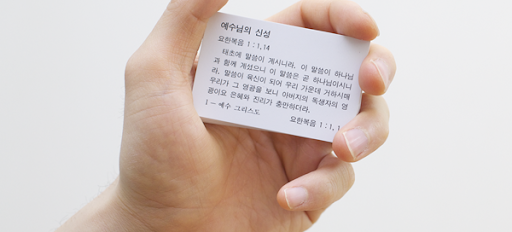 예수님의 신성
요한복음 1 : 1,14
태초에 말씀이 계시니라. 이 말씀이 하나님
과 함께 계셨으니 이 말씀은 곧 하나님이시니
라. 말씀이 육신이 되어 우리 가운데 거하시매
우리가 그 영광을 보니 아버지의 독생자의 영
광이요 은혜와 진리가 충만하더라.
Ⅰ - 예수 그리스도
요한복음 1 : 1, 1